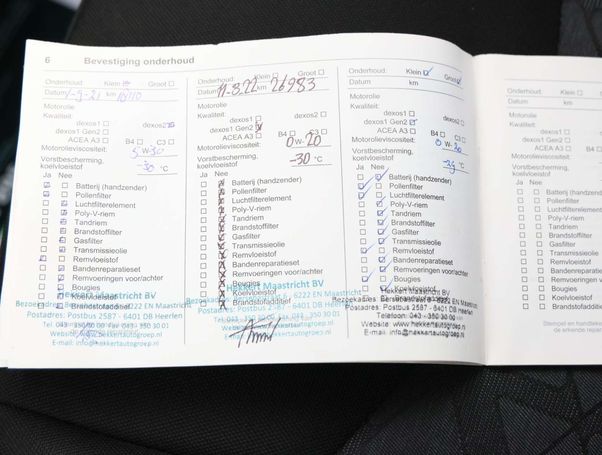 6 Bevestiging onderhoud
Onderhoud: Klein Groot
Datum km
Motorolie
Kwaliteit:
dexos1
dexos2
dexos1 Gen2
ACEA A3 B4 C3
Motorolieviscositeit: 5 W-30
Vorstbescherming,
koelvloeistof -30 °C
Ja Nee
Batterij (handzender)
Pollenfilter
Luchtfilterelement
Poly-V-riem
Tandriem
Brandstoffilter
Gasfilter
Transmissieolie
Remvloeistof
Bandenreparatieset
Remvoeringen voor/achter
Bougies
Koelvloeistof
Brandstofadditief
Hekkert Maastricht BV
Postadres: Postbus 2587 - 6401 DB Heerlen
Onderhoud: Klein Groot
Datum 11-8-22 km 26983
Motorolie
Kwaliteit:
dexos1
dexos2
dexos1 Gen2
ACEA A3 B4 C3
Motorolieviscositeit: 0 W-20
Vorstbescherming,
koelvloeistof -30 °C
Ja Nee
Batterij (handzender)
Pollenfilter
Luchtfilterelement
Poly-V-riem
Tandriem
Brandstoffilter
Gasfilter
Transmissieolie
Remvloeistof
Bandenreparatieset
Remvoeringen voor/achter
Bougies
Koelvloeistof
Brandstofadditief
Hekkert Maastricht BV
6222 EN Maastricht
Postadres: Postbus 2587 - 6401 DB Heerlen
Onderhoud: Klein Groot
Datum km
Motorolie
Kwaliteit:
dexos1
dexos2
dexos1 Gen2
ACEA A3 B4 C3
Motorolieviscositeit: 0 W-20
Vorstbescherming,
koelvloeistof °C
Ja Nee
Batterij (handzender)
Pollenfilter
Luchtfilterelement
Poly-V-riem
Tandriem
Brandstoffilter
Gasfilter
Transmissieolie
Remvloeistof
Bandenreparatieset
Remvoeringen voor/achter
Bougies
Koelvloeistof
Hekkert Maastricht BV
6222 EN Maastricht
Postadres: Postbus 2587 - 6401 DB Heerlen
Telefoon: 043 - 350 30 00
Website: www.hekkertautogroep.nl
E-mail: info@hekkertautogroep.nl
Onderhoud:
Datum
Motorolie
Kwaliteit:
dexos1
dexos1 Gen2
ACEA A3
Motorolieviscositeit:
Vorstbescherming,
koelvloeistof
Ja Nee
Batterij (handzender)
Pollenfilter
Luchtfilterelement
Poly-V-riem
Tandriem
Brandstoffilter
Gasfilter
Transmissieolie
Remvloeistof
Bandenreparatieset
Remvoeringen
Bougies
Koelvloeistof
Brandstofadditief